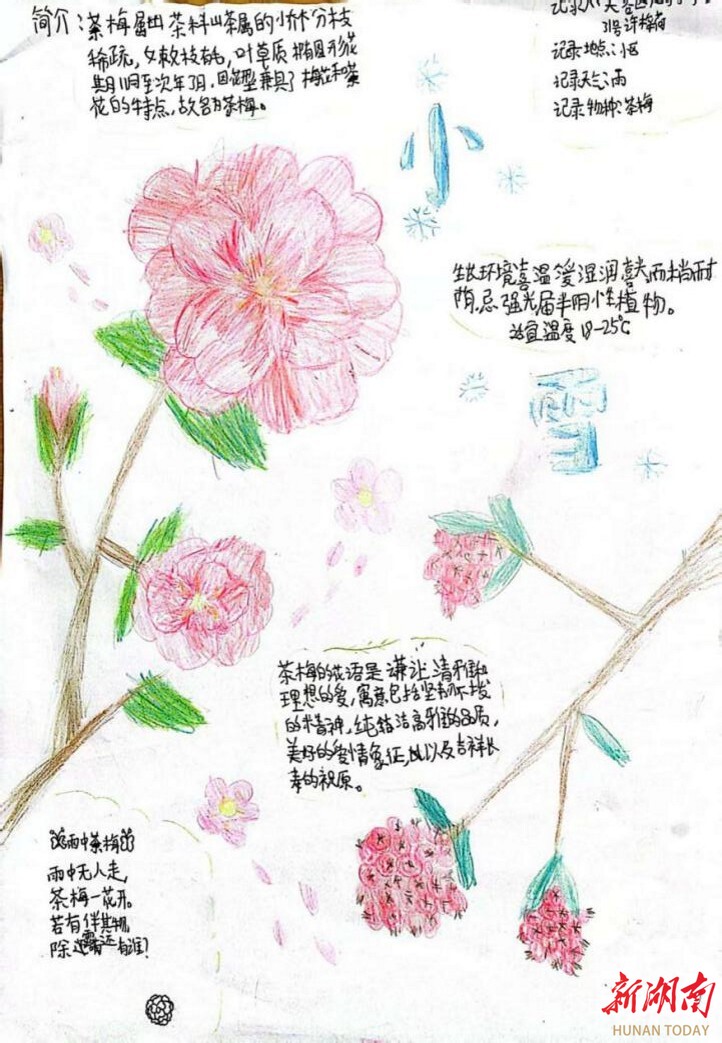 简介:茶梅属山茶科山茶属的小乔木分枝
稀疏,女敕枝有毛,叶草质椭圆形花
其月11月至次年3月,因花型兼具了梅花和茶
花的特点,故名为茶梅。
31号许梅梅
记录地点:小区
记录天气:雨
记录物种:茶梅
小
生长环境喜温暖湿润喜光而稍耐
荫,忌强光属半阴性植物。
适宜温度18-25℃
雪
茶梅的花语是谦让清雅和
理想的爱,寓意包括坚韧不拔
的精神,纯洁高雅的品质,
美好的爱情象征,以及吉祥长
寿的祝原。
雨中茶梅
雨中无人走,
茶梅一花开。
若有伴其物,
除露还有谁?
新湖南
HUNAN TODAY